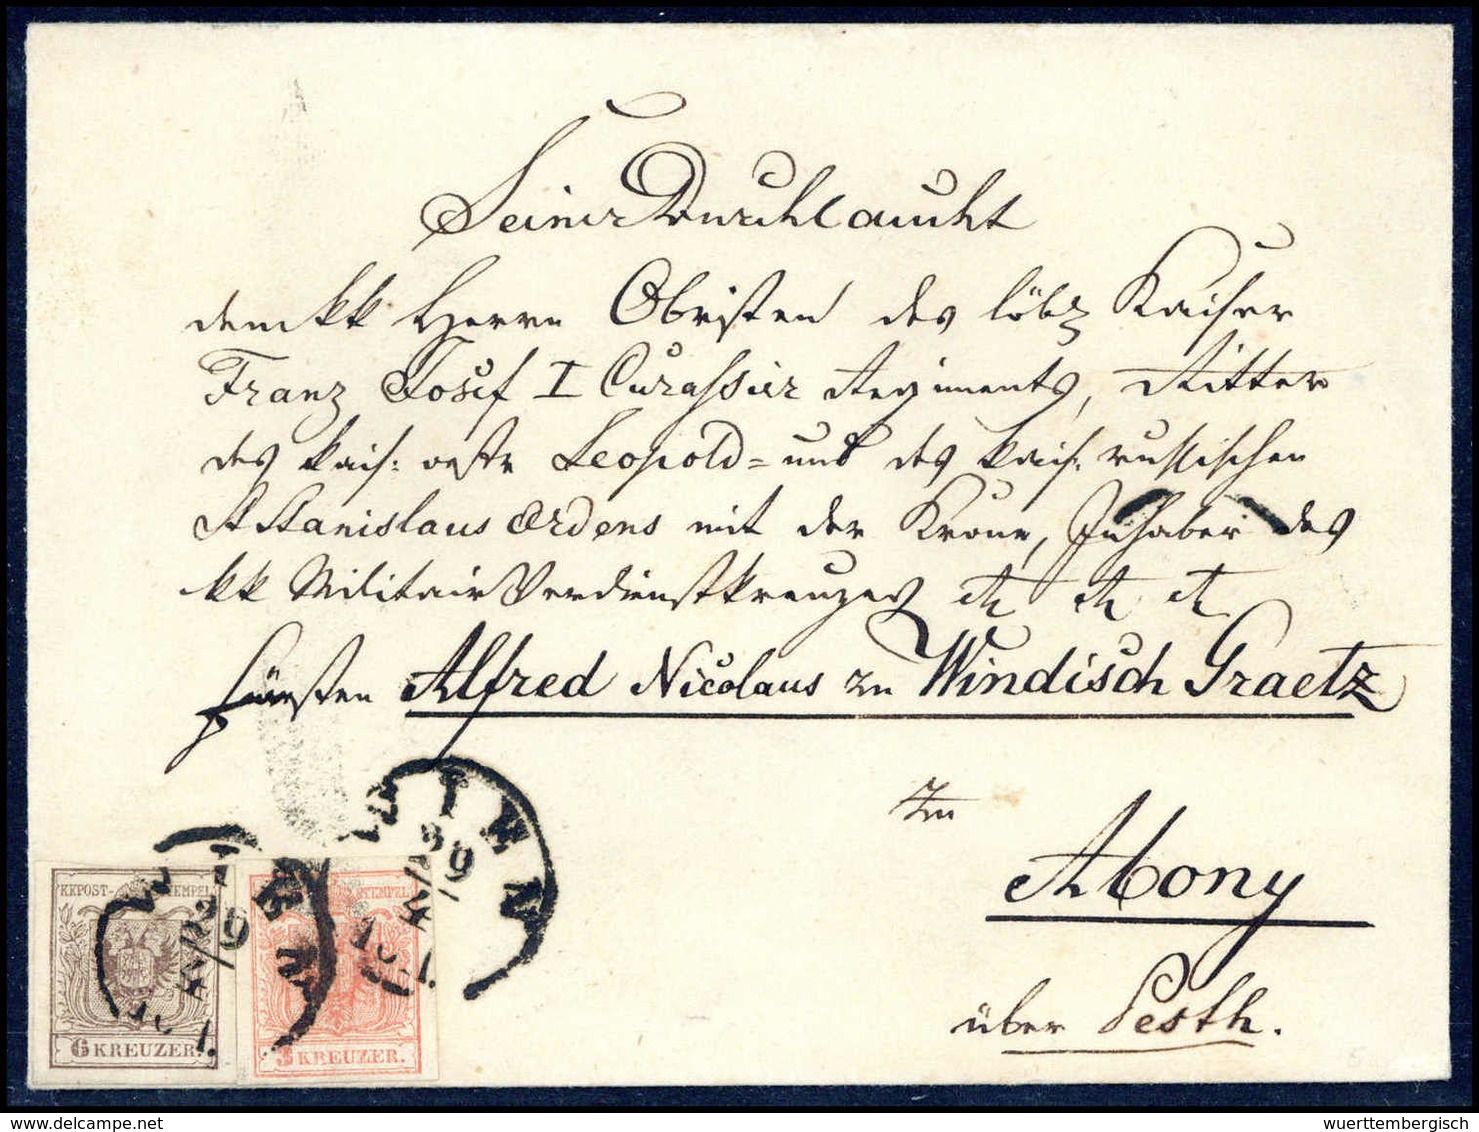 Seiner Durchlaucht
dem kk Herrn Obristen des löbl Kaiser
Franz Josef I Curassier Regiments, Ritter
des kais: östr Leopold= und des kais: russischen
St Stanislaus Ordens mit der Krone, Inhaber des
kk Militair Verdienstkreuzes etc etc etc
Fürsten Alfred Nicolaus zu Windisch Graetz
zu
Abony
über Pesth.
WIEN
WIEN
KKPOST-STEMPEL
6 KREUZER.
STEMPEL
3 KREUZER.
wuerttembergisch